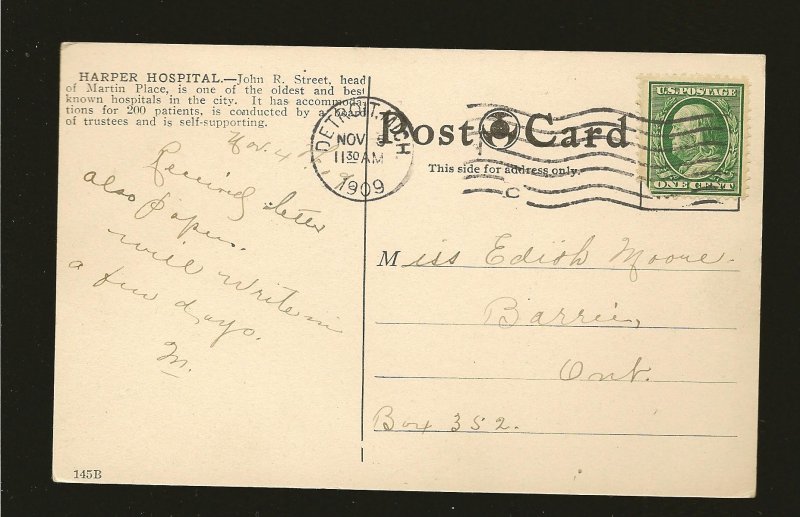 HARPER HOSPITAL.—John R. Street, head
of Martin Place, is one of the oldest and best
known hospitals in the city. It has accommoda-
tions for 200 patients, is conducted by a board
of trustees and is self-supporting.
Nov. 4
Received letter
also Papers.
will write in
a few days.
M.
145B
DETROIT, MICH
NOV 5
11 30 AM
1909
C
Post Card
This side for address only.
U.S. POSTAGE
ONE CENT
Miss Edith Moore.
Barrie,
Ont.
Box 352.